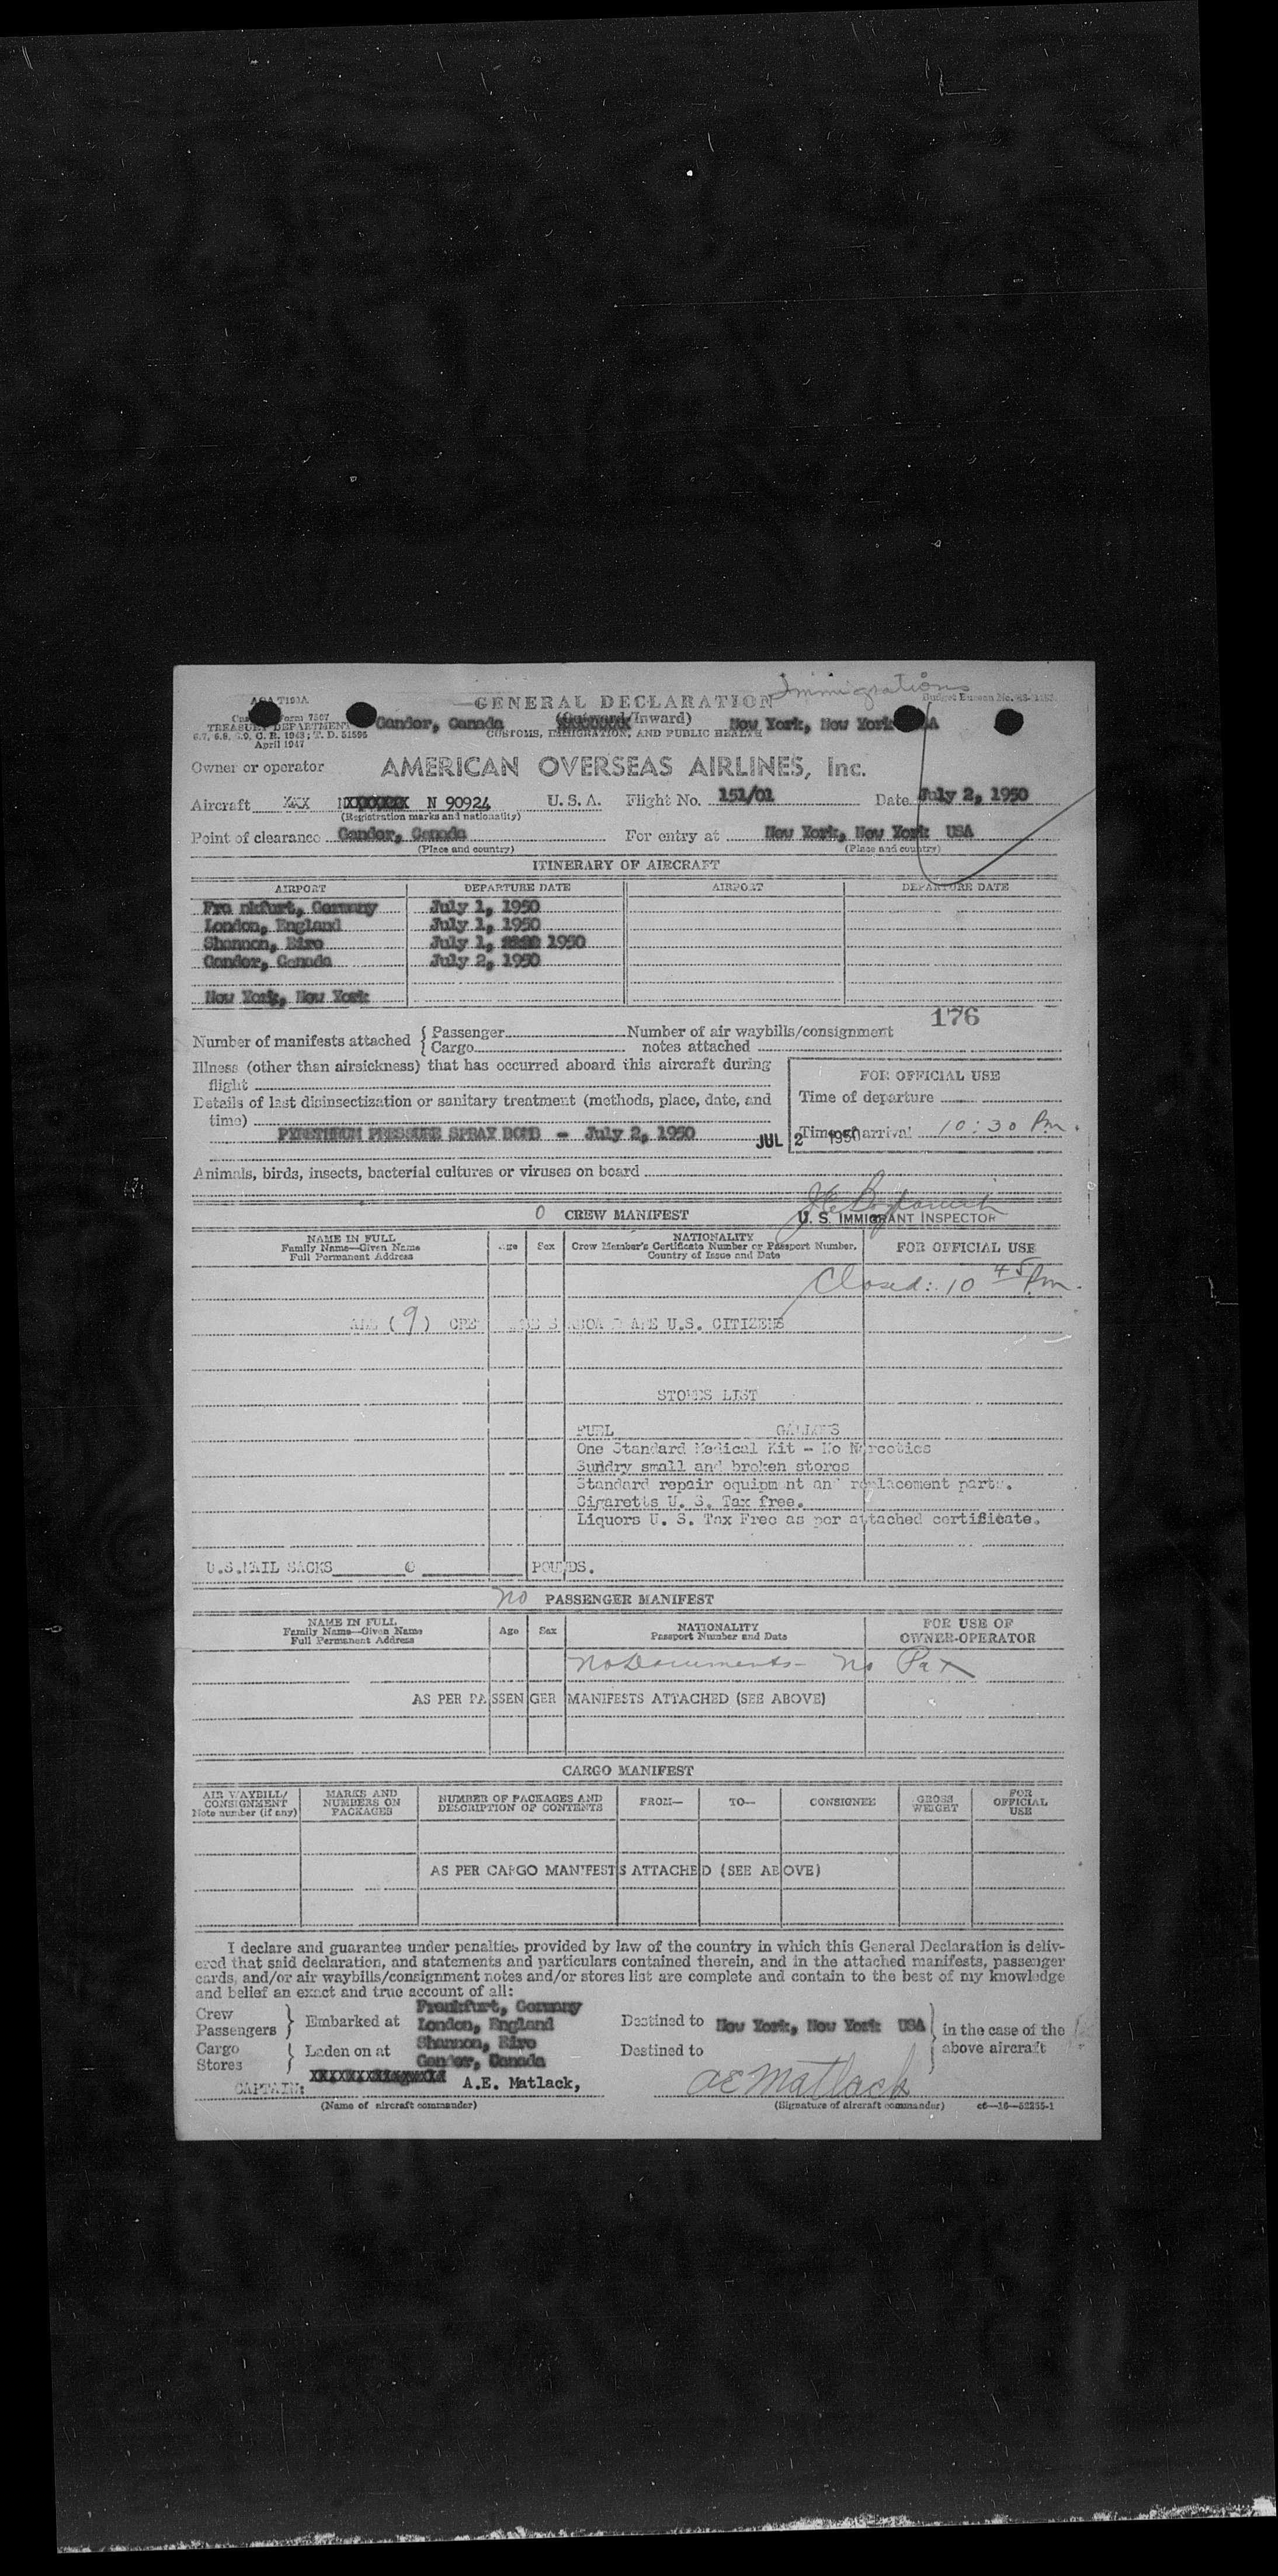 Immigrations
GENERAL DECLARATION
Customs Form 7507
TREASURY DEPARTMENT
Gander, Canada (Outward/Inward) New York, New York USA
6.7, 6.8, 6.9, C. R. 1943; T. D. 51595
CUSTOMS, IMMIGRATION, AND PUBLIC HEALTH
April 1947
Owner or operator AMERICAN OVERSEAS AIRLINES, Inc.
Aircraft XXX NXXXXXXX N 90924 U. S. A. Flight No. 151/01 Date July 2, 1950
(Registration marks and nationality)
Point of clearance Gander, Canada For entry at New York, New York USA
(Place and country) (Place and country)
ITINERARY OF AIRCRAFT
AIRPORT DEPARTURE DATE AIRPORT DEPARTURE DATE
Fra nkfurt, Germany July 1, 1950
London, England July 1, 1950
Shannon, Eire July 1, 1950
Gander, Canada July 2, 1950
New York, New York
176
Number of manifests attached { Passenger Number of air waybills/consignment
Cargo notes attached
Illness (other than airsickness) that has occurred aboard this aircraft during
flight
FOR OFFICIAL USE
Details of last disinsectization or sanitary treatment (methods, place, date, and
time)
Time of departure
PYRETHRUM PRESSURE SPRAY BOMB - July 2, 1950
JUL 2 1950
Time of arrival 10:30 Pm.
Animals, birds, insects, bacterial cultures or viruses on board
0 CREW MANIFEST
U. S. IMMIGRANT INSPECTOR
NAME IN FULL
Family Name—Given Name
Full Permanent Address
Age Sex
NATIONALITY
Crew Member's Certificate Number or Passport Number,
Country of Issue and Date
FOR OFFICIAL USE
Closed: 10 45 Pm.
ALL (9) CRE ABOA D ARE U.S. CITIZENS
STORES LIST
FUEL GALLONS
One Standard Medical Kit - No Narcotics
Sundry small and broken stores
Standard repair equipm nt and replacement parts.
Cigaretts U. S. Tax free.
Liquors U. S. Tax Free as per attached certificate.
U.S.MAIL SACKS 0 POUNDS.
No PASSENGER MANIFEST
NAME IN FULL
Family Name—Given Name
Full Permanent Address
Age Sex
NATIONALITY
Passport Number and Date
FOR USE OF
OWNER-OPERATOR
No Documents - No Pax
AS PER PASSENGER MANIFESTS ATTACHED (SEE ABOVE)
CARGO MANIFEST
AIR WAYBILL/
CONSIGNMENT
Note number (if any)
MARKS AND
NUMBERS ON
PACKAGES
NUMBER OF PACKAGES AND
DESCRIPTION OF CONTENTS
FROM— TO— CONSIGNEE
GROSS
WEIGHT
FOR
OFFICIAL
USE
AS PER CARGO MANIFESTS ATTACHED (SEE ABOVE)
I declare and guarantee under penalties provided by law of the country in which this General Declaration is deliv-
ered that said declaration, and statements and particulars contained therein, and in the attached manifests, passenger
cards, and/or air waybills/consignment notes and/or stores list are complete and contain to the best of my knowledge
and belief an exact and true account of all:
Crew
Passengers } Embarked at
Frankfurt, Germany
London, England
Destined to New York, New York USA
in the case of the
above aircraft
Cargo
Stores } Laden on at
Shannon, Eire
Gander, Canada
Destined to
CAPTAIN: A.E. Matlack, AE Matlack
(Name of aircraft commander) (Signature of aircraft commander) c6—16—52235-1